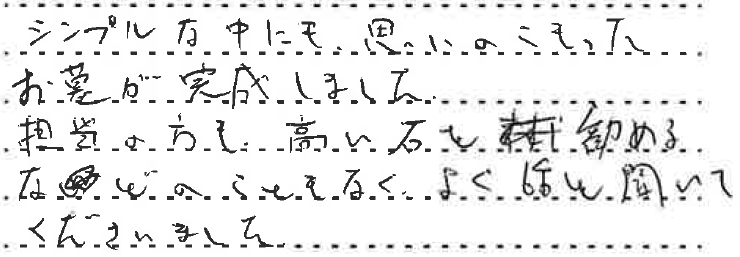 シンプルな中にも、思いのこもった
お墓が完成しました。
担当の方も、高い石を勧める
などのこともなく、よく話を聞いて
くださいました。